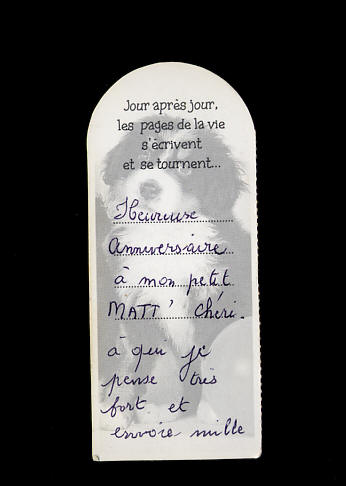 Jour après jour,
les pages de la vie
s'écrivent
et se tournent...
Heureuse
anniversaire
à mon petit
MATT' chéri.
à qui je
pense très
fort et
envoie mille